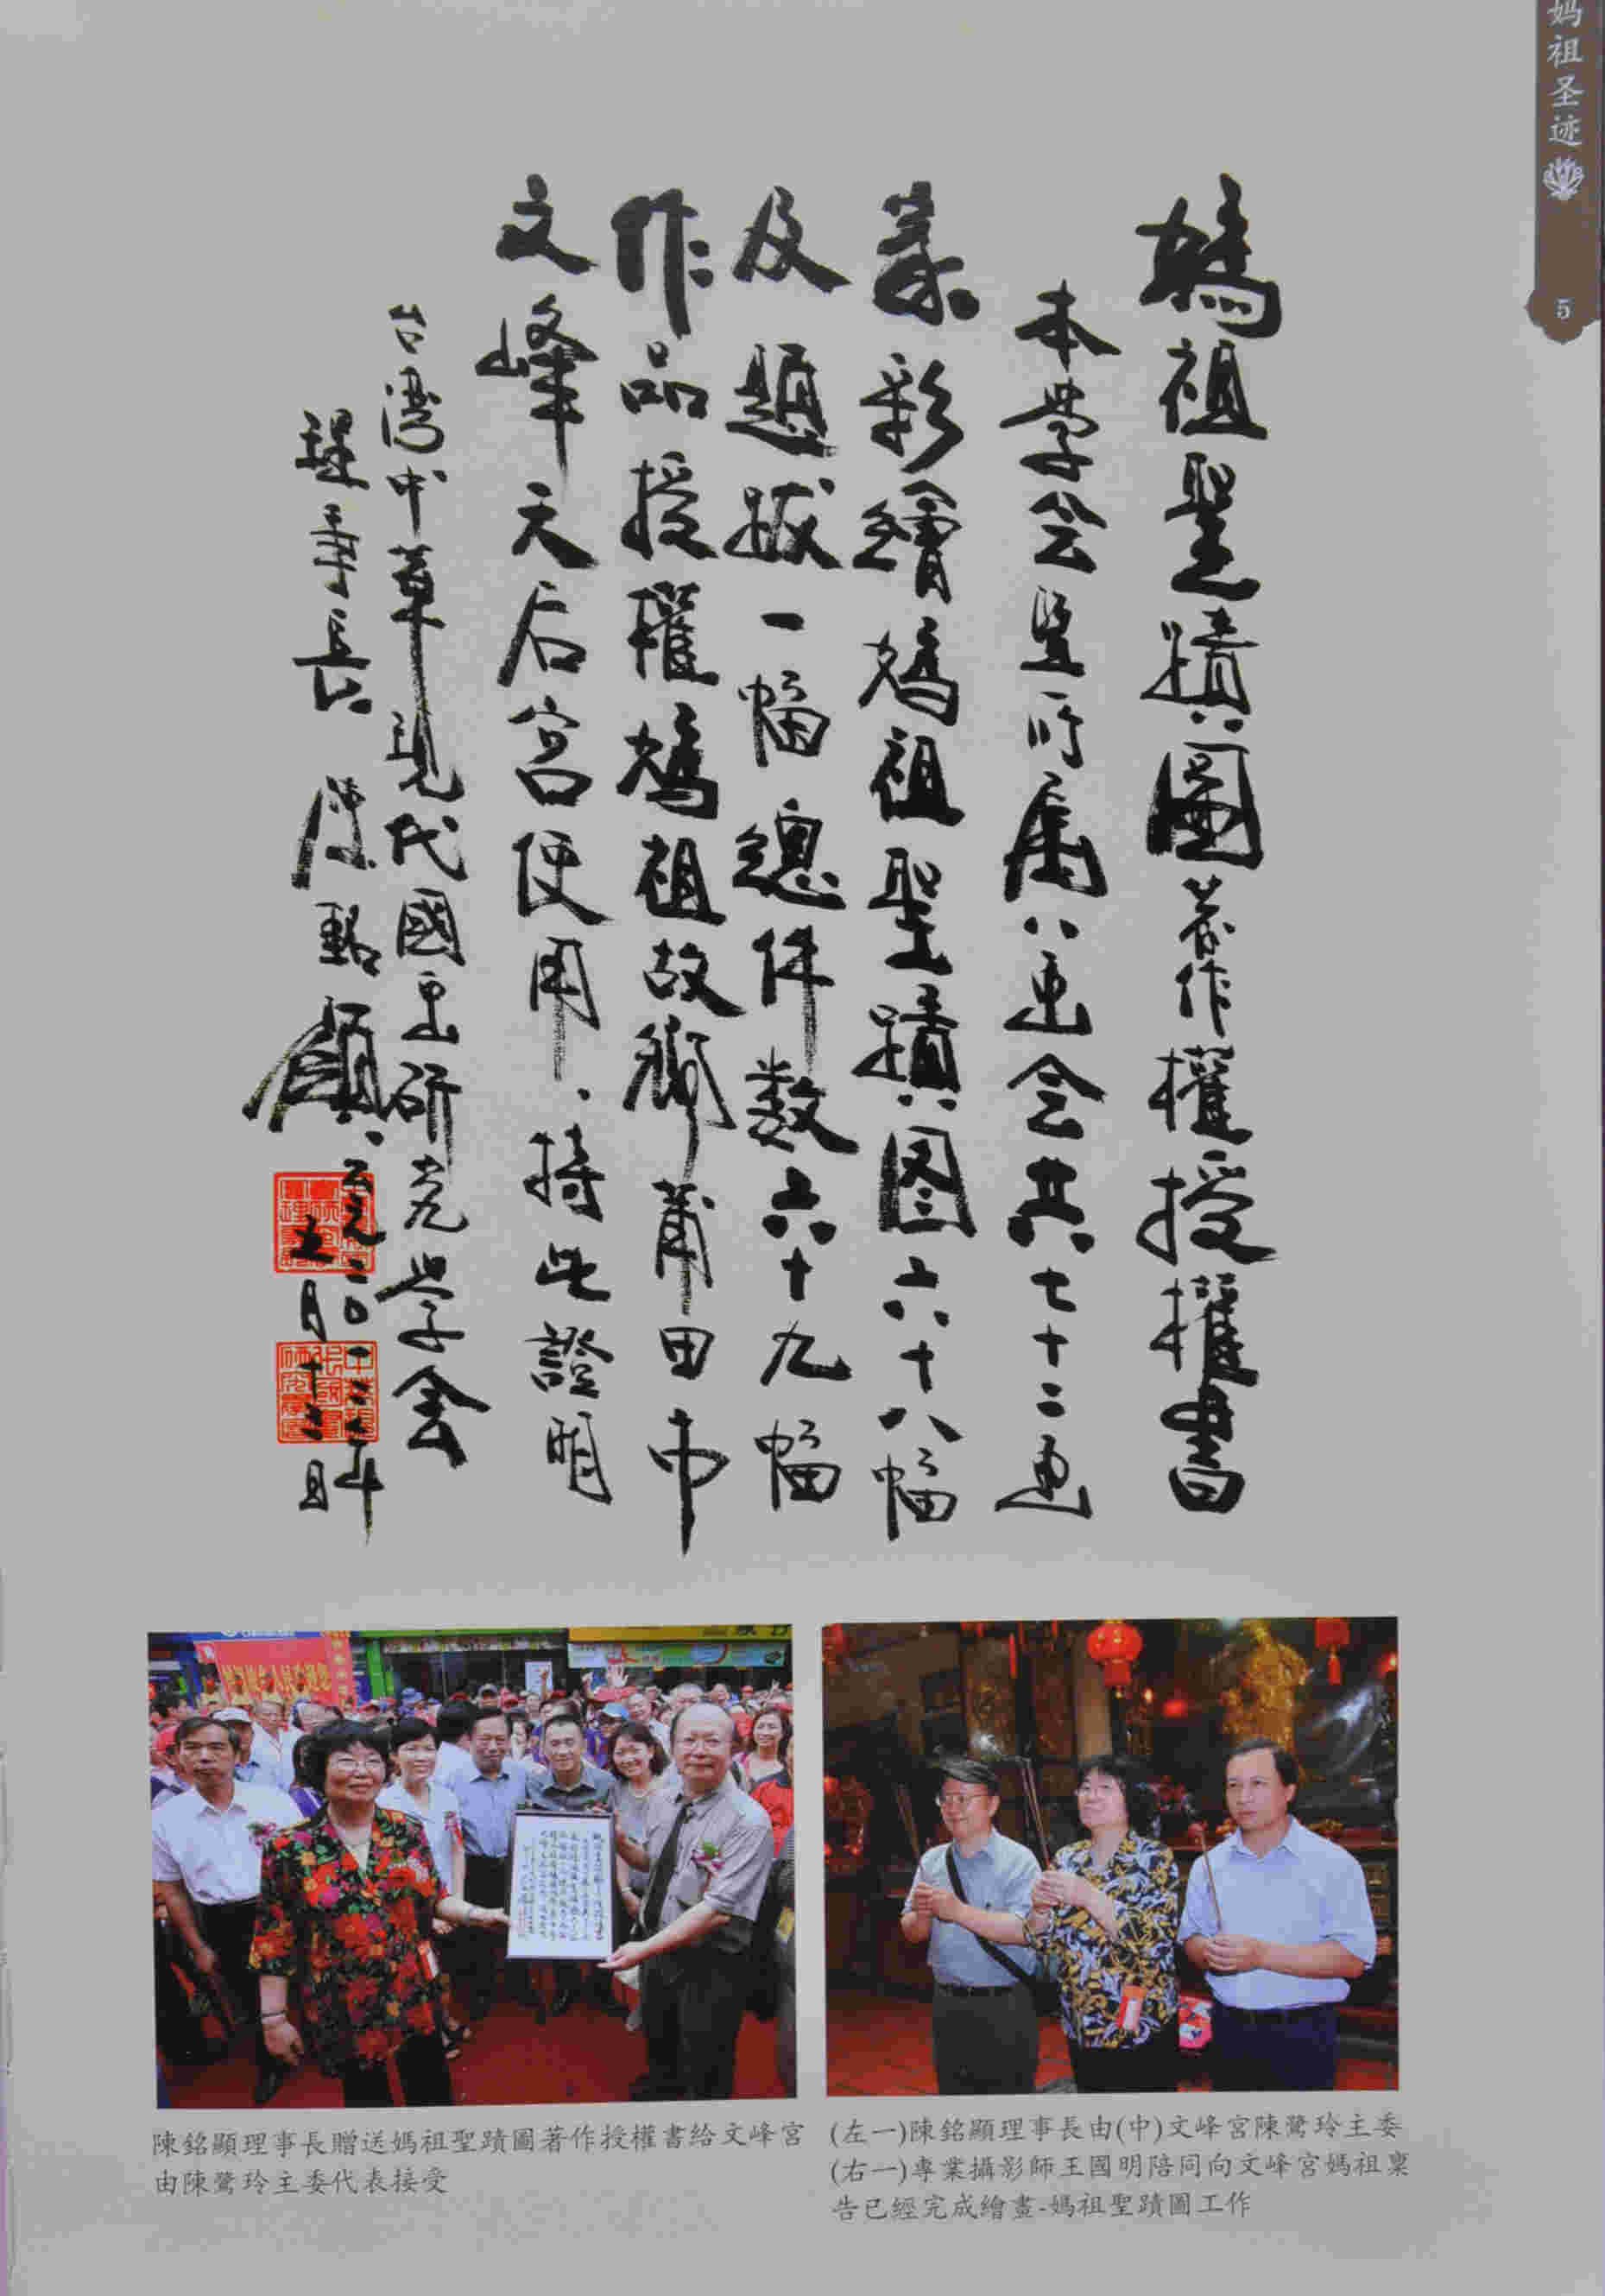 妈祖圣迹
5
媽祖聖蹟圖著作權授權書
本學会暨所屬八画会共七十二画
家彩繪媽祖聖蹟图六十八幅
及題跋一幅總件数六十九幅
作品授權媽祖故鄉莆田市
文峰天后宫使用、特此證明
台湾中華現代國画研究學會
理事長 陳銘顯
二〇一二年
五月十二日
陳銘顯理事長贈送媽祖聖蹟圖著作授權書給文峰宮
由陳鷺玲主委代表接受
(左一)陳銘顯理事長由(中)文峰宮陳鷺玲主委
(右一)專業攝影師王國明陪同向文峰宮媽祖稟
告已經完成繪畫-媽祖聖蹟圖工作